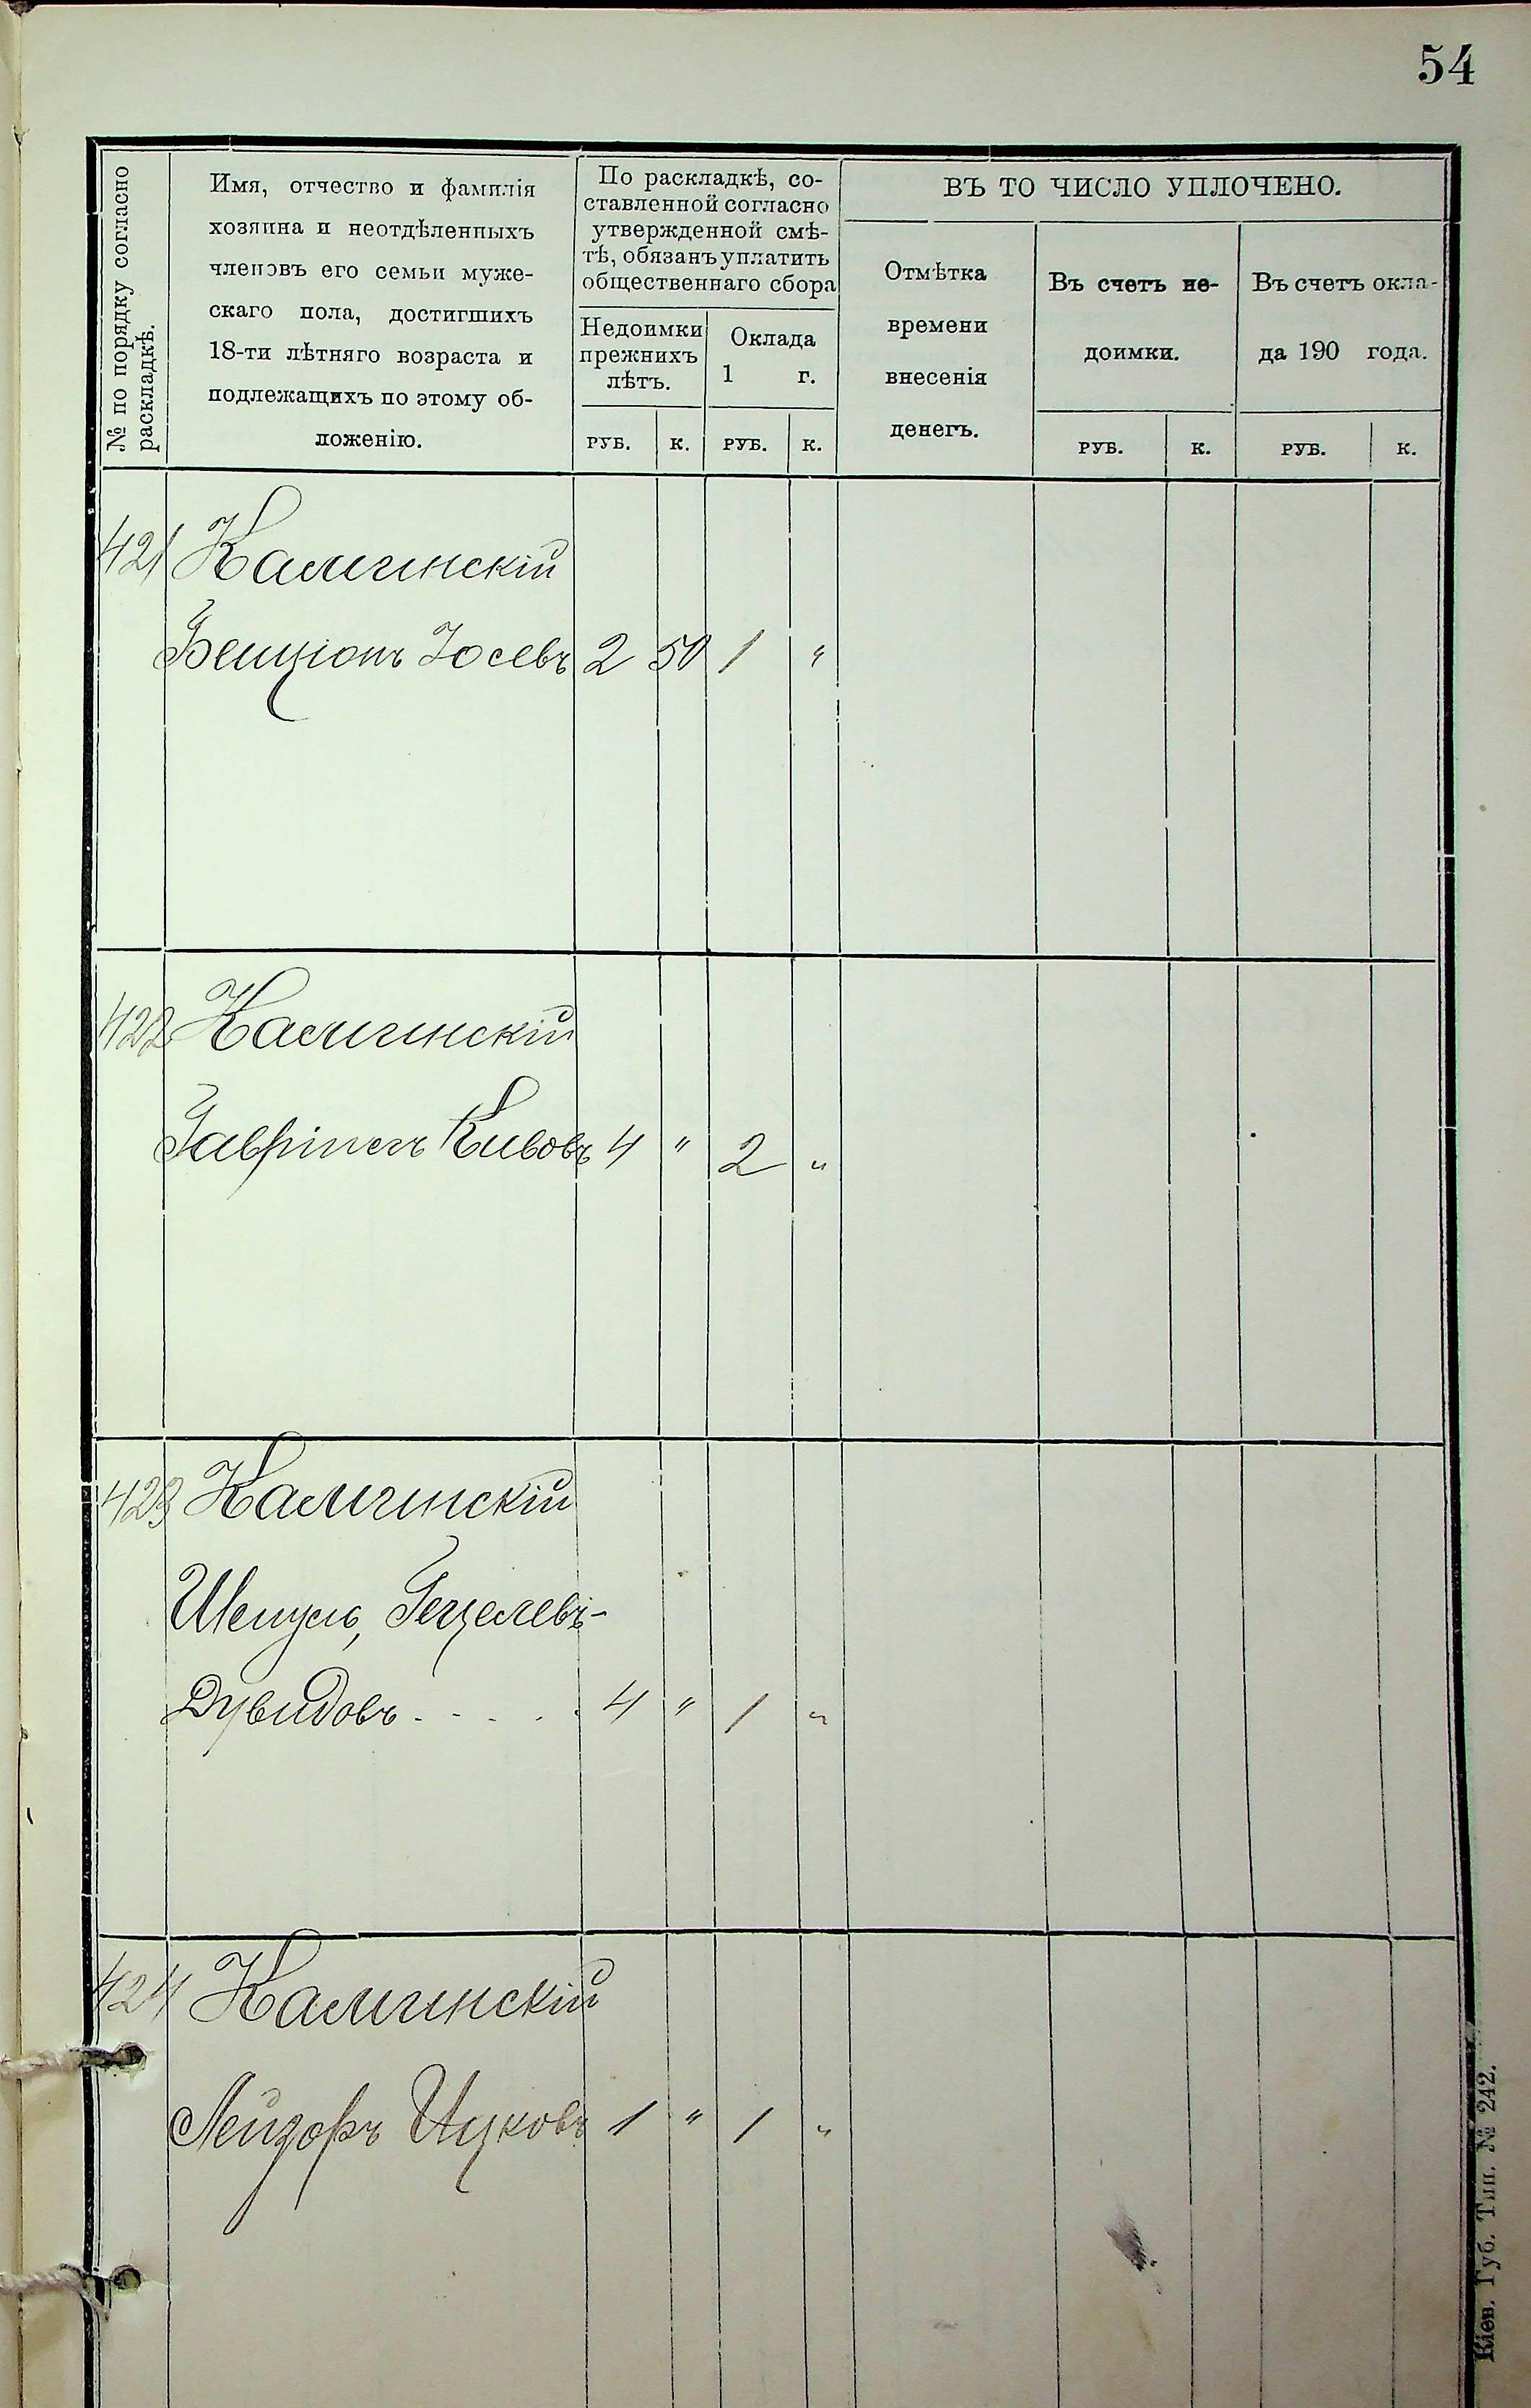 54
№ по порядку согласно
раскладкѣ.
Имя, отчество и фамилія
хозяина и неотдѣленныхъ
членовъ его семьи муже-
скаго пола, достигшихъ
18-ти лѣтняго возраста и
подлежащихъ по этому об-
ложенію.
По раскладкѣ, со-
ставленной согласно
утвержденной смѣ-
тѣ, обязанъ уплатить
общественнаго сбора
Недоимки
прежнихъ
лѣтъ.
Оклада
1 г.
РУБ. К. РУБ. К.
ВЪ ТО ЧИСЛО УПЛОЧЕНО.
Отмѣтка
времени
внесенія
денегъ.
Въ счетъ не-
доимки.
Въ счетъ окла-
да 190 года.
РУБ. К. РУБ. К.
421 Калинскій
Бенціонъ Іосевъ 2 50 1 "
422 Калинскій
Гавріилъ Кивовъ 4 " 2 "
423 Калинскій
Шепсель, Гецелевъ-
Дувидовъ . - - . . 4 " 1 "
424 Калинскій
Лейзоръ Ицковъ 1 " 1 "
Кіев. Губ. Тип. № 242.